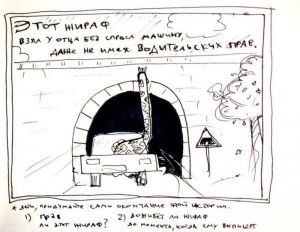 ЭТОТ ЖИРАФ
ВЗЯЛ У ОТЦА БЕЗ СПРОСА МАШИНУ,
ДАЖЕ НЕ ИМЕЯ ВОДИТЕЛЬСКИХ ПРАВ.
* ДЕТИ, ПРИДУМАЙТЕ САМИ ОКОНЧАНИЕ ЭТОЙ ИСТОРИИ.
1) ПРАВ
ЛИ ЭТОТ ЖИРАФ?
2) ДОЖИВЁТ ЛИ ЖИРАФ
ДО МОМЕНТА, КОГДА ЕМУ ВЫПИШУТ